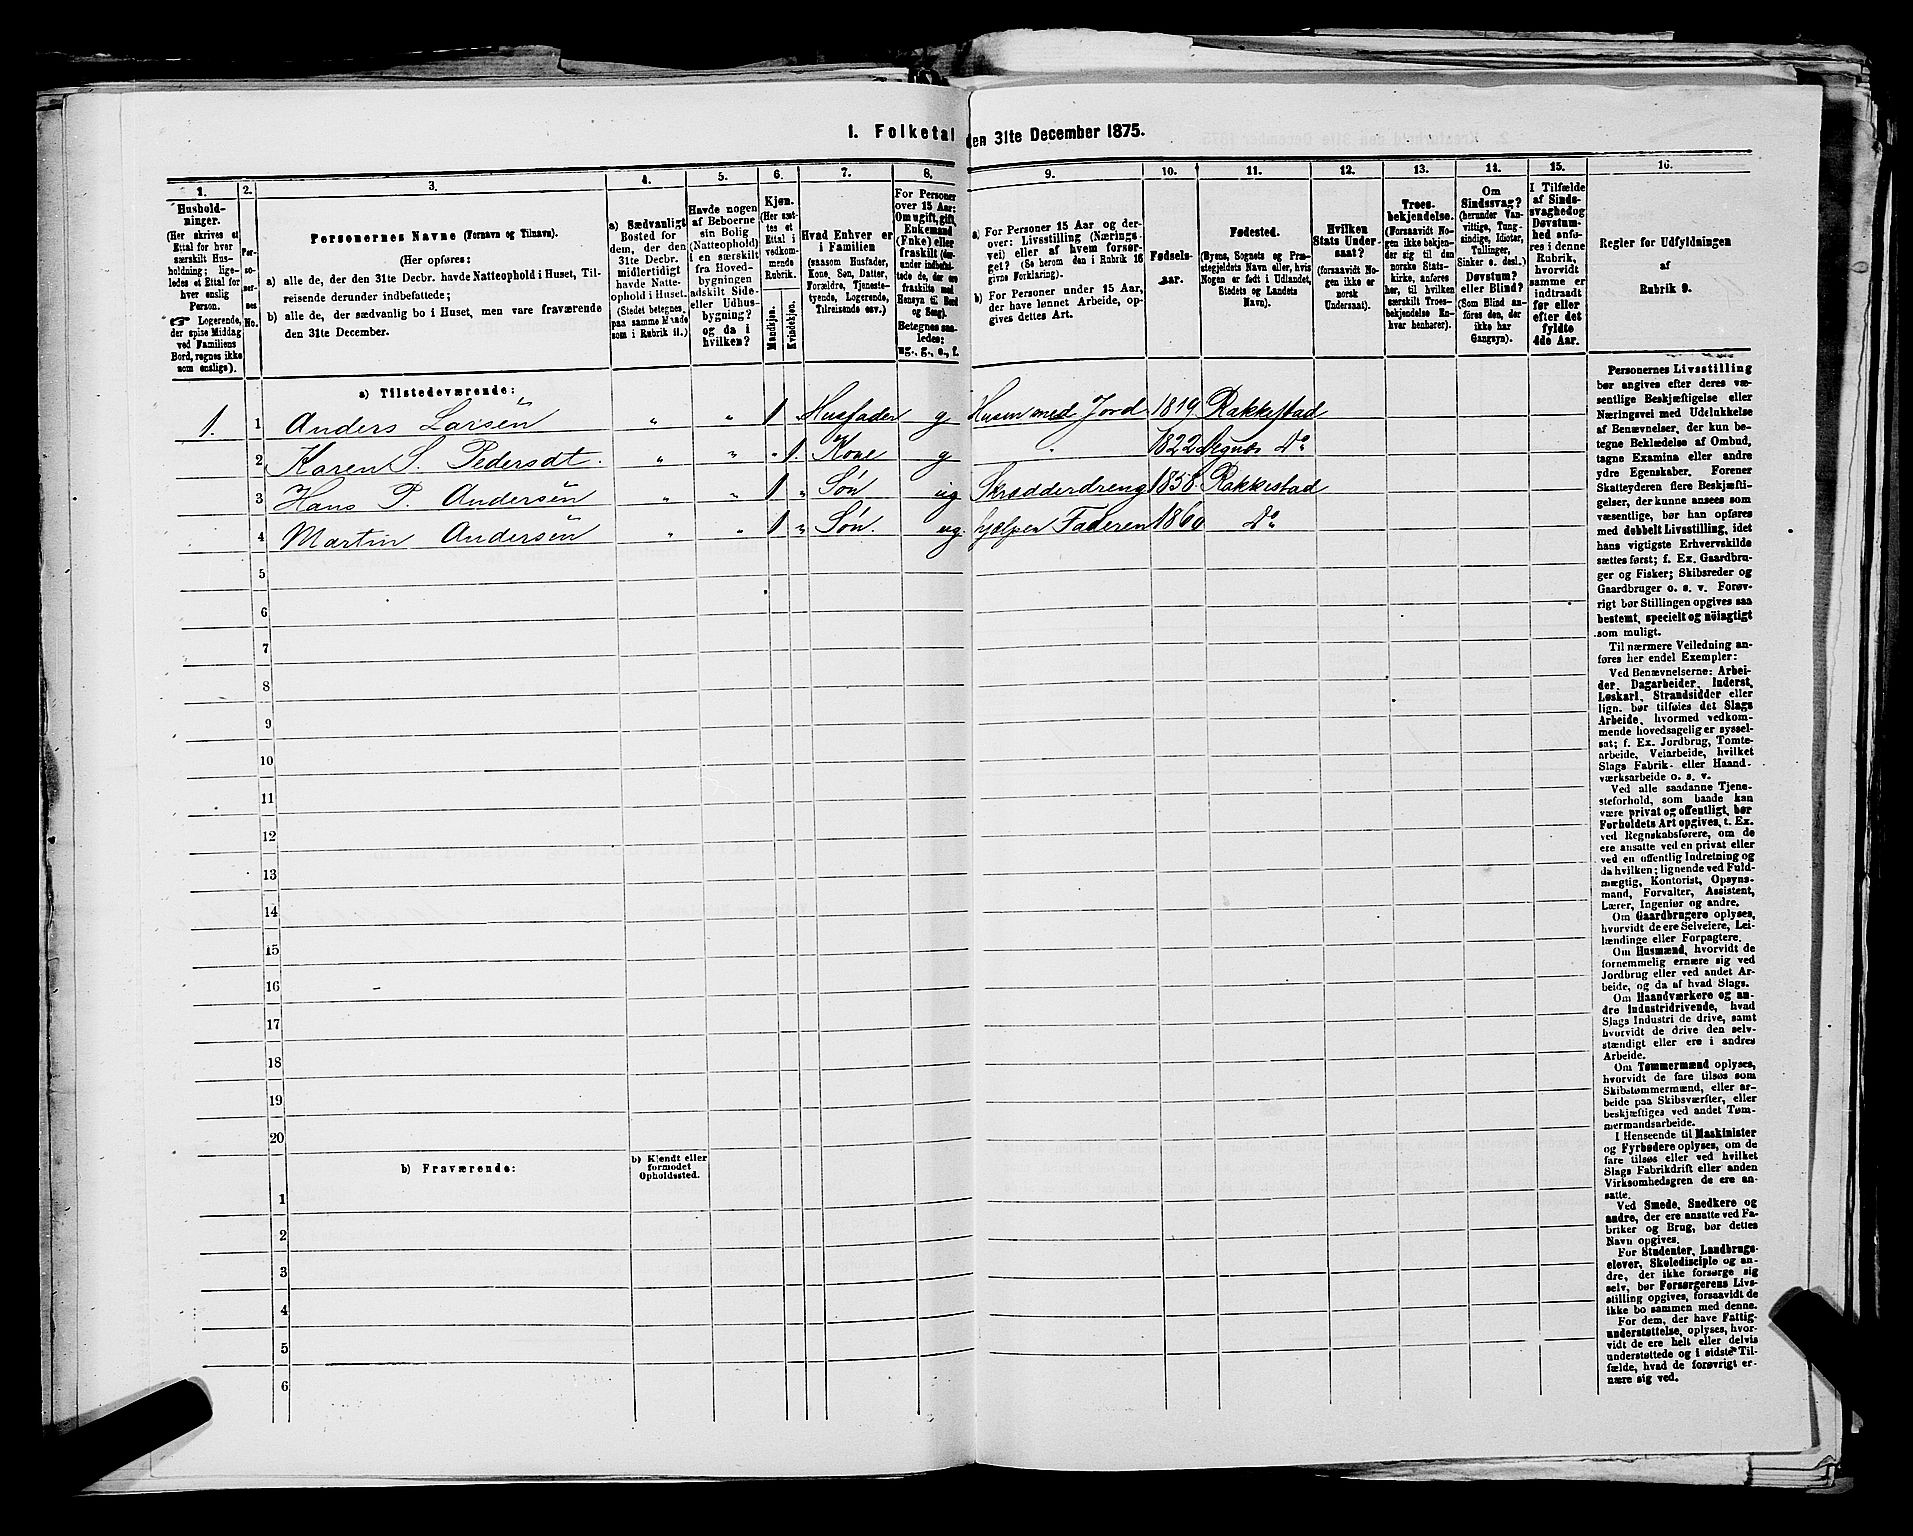 1. Folketal den 31te December 1875.
1.
2.
3.
4.
5.
6.
7.
8.
9.
10.
11.
12.
13.
14.
15.
16.
Husholdninger.
(Her skrives et
Ettal for hver
særskilt Husholdning;
ligeledes et Ettal for
hver enslig
Person.
☞ Logerende,
der spise Middag
ved Familiens
Bord, regnes ikke
som enslige).
Personernes No.
Personernes Navne (Fornavn og Tilnavn).
(Her opføres:
a) alle de, der den 31te Decbr. havde Natteophold i Huset, Tilreisende derunder indbefattede;
b) alle de, der sædvanlig bo i Huset, men vare fraværende
den 31te December.
a) Sædvanligt
Bosted for
dem, der den
31te Decbr.
midlertidigt
havde Natteophold
i Huset.
(Stedet betegnes
paa samme Maade
som i Rubrik 11.)
Havde nogen
af Beboerne
sin Bolig
(Natteophold)
i en særskilt
fra Hovedbygningen
adskilt Side-
eller Udhusbygning?
og da i
hvilken?
Kjøn.
(Her sættes
et
Ettal i
vedkommende
Rubrik.
Mandkjøn.
Kvindekjøn.
Hvad Enhver er
i Familien
(saasom Husfader,
Kone, Søn, Datter,
Forældre, Tjenestetyende,
Logerende,
Tilreisende osv.)
For Personer
over 15 Aar:
Om ugift, gift,
Enkemand
(Enke) eller
fraskilt (derunder
indbefattede
de, der ere
fraskilte med
Hensyn til Bord
og Seng).
Betegnes saaledes:
ug., g., e., f.
a) For Personer 15 Aar og derover:
Livsstilling (Næringsvei)
eller af hvem forsørget?
(Se herom den i Rubrik 16
givne Forklaring).
b) For Personer under 15 Aar,
der have lønnet Arbeide, opgives
dettes Art.
Fødselsaar.
Fødested.
(Byens, Sognets og Præstegjeldets
Navn eller, hvis
Nogen er født i Udlandet,
Stedets og Landets
Navn).
Hvilken
Stats Undersaat?
(forsaavidt Nogen
ikke er
norsk
Undersaat).
Troesbekjendelse.
(Forsaavidt Nogen
ikke bekjender
sig til den
norske Statskirke,
anføres
her, til hvilken
særskilt Troesbekjendelse
Enhver
henhører).
Om
Sindssvag?
(herunder Vanvittige,
Tungsindige,
Idioter,
Tullinger,
Sinker o. desl.)
Døvstum?
eller Blind?
(Som Blind anføres
den, der
ikke har
Gangsyn).
I Tilfælde
af Sindssvaghed
og
Døvstumhed
anføres
i denne
Rubrik,
hvorvidt
samme er
indtraadt
før eller
efter det
fyldte
4de Aar.
Regler for Udfyldningen
af
Rubrik 9.
a) Tilstedeværende:
1. 1 Anders Larsen „ „ 1 „ Husfader g Husm med Jord 1819 Rakkestad
2 Karen S. Pedersdt. „ „ „ 1. Kone g „ 1822 Degnæs Do
3 Hans P. Andersen „ „ 1 „ Søn ug Skrædderdreng 1858 Rakkestad
4 Martin Andersen „ „ 1 „ Søn. ug. hjælper Faderen 1860 Do
5
6
7
8
9
10
11
12
13
14
15
16
17
18
19
20
b) Fraværende:
b) Kjendt eller
formodet
Opholdssted.
1
2
3
4
5
6
Personernes Livsstilling
bør angives efter deres væsentlige
Beskjæftigelse eller
Næringsvei med Udelukkelse
af Benævnelser, der kun betegne
Beklædelse af Ombud,
tagne Examina eller andre
ydre Egenskaber. Forener
Skatteyderen flere Beskjæftigelser,
der kunne ansees som
væsentlige, bør han opføres
med dobbelt Livsstilling, idet
hans vigtigste Erhvervskilde
sættes først; f. Ex. Gaardbruger
og Fisker; Skibsreder og
Gaardbruger o. s. v. Forøvrigt
bør Stillingen opgives saa
bestemt, specielt og nöiagtigt
som muligt.
Til nærmere Veiledning anføres
her endel Exempler:
Ved Benævnelserne: Arbeider,
Dagarbeider, Inderst,
Løskarl, Strandsidder eller
lign. bør tilføies det Slags
Arbeide, hvormed vedkommende
hovedsagelig er sysselsat;
f. Ex. Jordbrug, Tomtearbeide,
Veiarbeide, hvilket
Slags Fabrik- eller Haandværksarbeide
o. s. v.
Ved alle saadanne Tjenesteforhold,
som baade kan
være privat og offentligt, bør
Forholdets Art opgives, t. Ex.
ved Regnskabsførere, om de
ere ansatte ved en privat eller
ved en offentlig Indretning og
da hvilken; lignende ved Fuldmægtig,
Kontorist, Opsynsmand,
Forvalter, Assistent,
Lærer, Ingeniør og andre.
Om Gaardbrugere oplyses,
hvorvidt de ere Selveiere, Leilændinge
eller Forpagtere.
Om Husmænd, hvorvidt de
fornemmelig ernære sig ved
Jordbrug eller ved andet Arbeide,
og da af hvad Slags.
Om Haandværkere og andre
Industridrivende, hvad
Slags Industri de drive, samt
hvorvidt de drive den selvstændigt
eller ere i andres
Arbeide.
Om Tømmermænd oplyses,
hvorvidt de fare tilsøs som
Skibstømmermænd, eller arbeide
paa Skibsværfter, eller
beskjæftiges ved andet Tømmermandsarbeide.
I Henseende til Maskinister
og Fyrbødere oplyses, om de
fare tilsøs eller ved hvilket
Slags Fabrikdrift eller anden
Virksomhedsgren de ere ansatte.
Ved Smede, Snedkere og
andre, der ere ansatte ved Fabriker
og Brug, bør dettes
Navn opgives.
For Studenter, Landbrugselever,
Skoledisciple og andre,
der ikke forsørge sig
selv, bør Forsørgerens Livsstilling
opgives, forsaavidt de
ikke bo sammen med denne.
For dem, der have Fattigunderstøttelse,
oplyses, hvorvidt
de ere helt eller delvis
understøttede og i sidste Tilfælde,
hvad de forøvrigt ernære
sig ved.